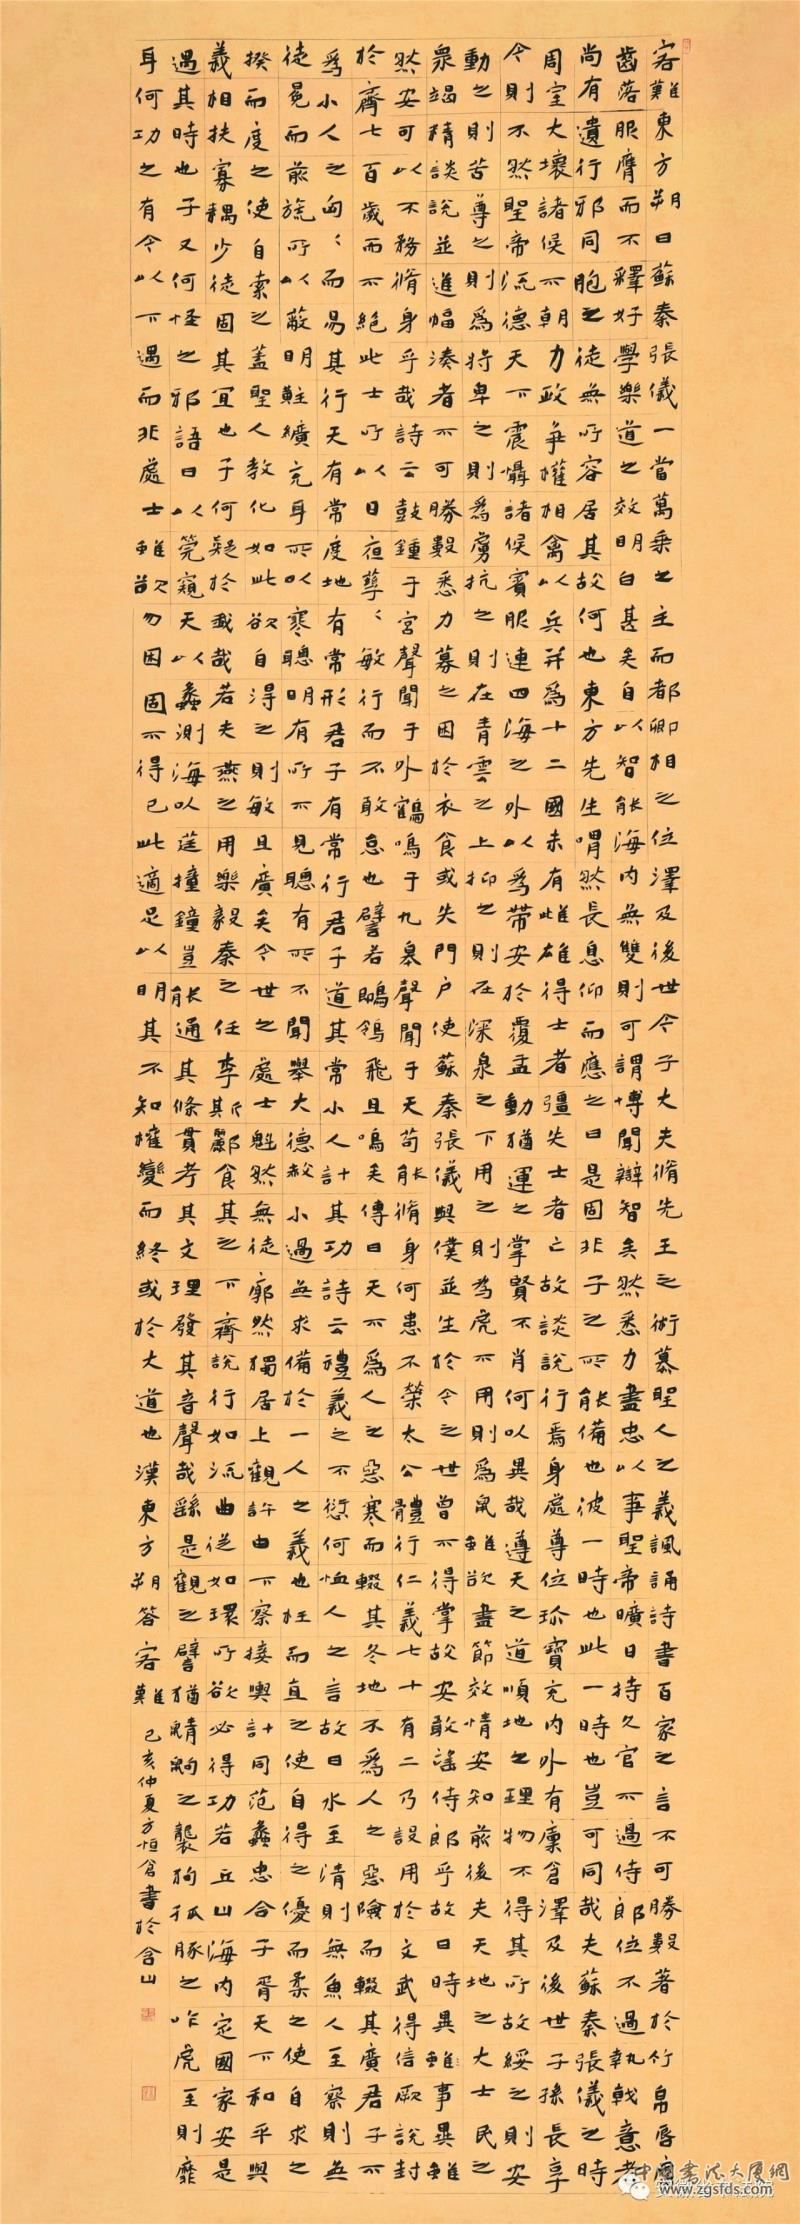 客難東方朔曰蘇秦張儀一當萬乘之主而都卿相之位澤及後世今子大夫脩先王之術慕聖人之義諷誦詩書百家之言不可勝數著於竹帛脣腐
齒落服膺而不釋好學樂道之效明白甚矣自以智能海內無雙則可謂博聞辯智矣然悉力盡忠以事聖帝曠日持久官不過侍郎位不過執戟意者
尚有遺行邪同胞之徒無所容居其故何也東方先生喟然長息仰而應之曰是固非子之所能備也彼一時也此一時也豈可同哉夫蘇秦張儀之時
周室大壞諸侯不朝力政爭權相禽以兵并為十二國未有雌雄得士者彊失士者亡故談說行焉身處尊位珍寶充內外有廩倉澤及後世子孫長享
今則不然聖帝流德天下震懾諸侯賓服連四海之外以為帶安於覆盂動猶運之掌賢不肖何以異哉遵天之道順地之理物不得其所故綏之則安
動之則苦尊之則為將卑之則為虜抗之則在青雲之上抑之則在深泉之下用之則為虎不用則為鼠雖欲盡節效情安知前後夫天地之大士民之
眾竭精談說並進幅湊者不可勝數悉力募之困於衣食或失門戶使蘇秦張儀與僕並生於今之世曾不得掌故安敢望侍郎乎故曰時異雖事異雖
然安可以不務脩身乎哉詩云鼓鍾于宮聲聞于外鶴鳴于九皋聲聞于天苟能脩身何患不榮太公體行仁義七十有二乃設用於文武得信厥說封
於齊七百歲而不絕此士所以日夜孳〻敏行而不敢怠也譬若鶺鴒飛且鳴矣傳曰天不為人之惡寒而輟其冬地不為人之惡險而輟其廣君子不
為小人之匈〻而易其行天有常度地有常形君子有常行君子道其常小人計其功詩云禮義之不愆何恤人之言故曰水至清則無魚人至察則無
徒冕而前旒所以蔽明黈纊充耳所以塞聰明有所不見聰有所不聞舉大德赦小過無求備於一人之義也枉而直之使自得之優而柔之使自求之
揆而度之使自索之蓋聖人教化如此欲自得之則敏且廣矣今世之處士魁然無徒廓然獨居上觀許由下察接輿計同范蠡忠合子胥天下和平與
義相扶寡耦少徒固其宜也子何疑於我哉若夫燕之用樂毅秦之任李斯酈食其之下齊說行如流曲從如環所欲必得功若丘山海內定國家安是
遇其時也子又何怪之邪語曰以筦窺天以蠡測海以莛撞鐘豈能通其條貫考其文理發其音聲哉繇是觀之譬猶鼱鼩之襲狗孤豚之咋虎至則靡
耳何功之有今以下遇而非處士雖欲勿困固不得已此適足以明其不知權變而終或於大道也漢東方朔答客難
己亥仲夏方恒倉書於含山
中国書法大厦網
www.zgsfds.com